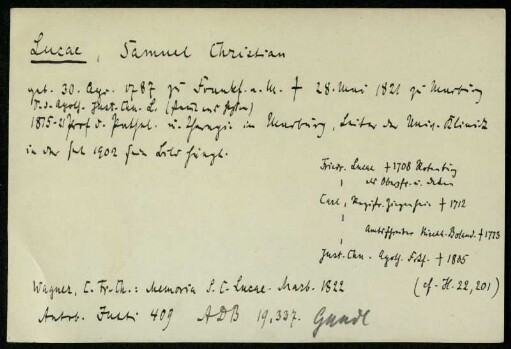 Lucae, Samuel Christian
geb. 30. Apr. 1787 zu Frankf. a. M. † 28. Mai 1821 zu Marburg
V. d. Apoth. Just. Chn. L.
1815-21 Prof. d. Pathol. u. Therapie in Marburg, Leiter der Univ. Klinik
in der seit 1902 sein Bild hängt.
Friedr. Lucae † 1708 Rotenburg
als Oberpfr. u. Dekan
Carl, Ziegenhain † 1712
Kirchh. Boland. † 1773
Just. Chn. Apoth. Ffkf. † 1805
Wagner, C. Fr. Ch.: Memoria S. C. Lucae. Marb. 1822 (cf. H. 22, 201)
409 ADB 19,337.